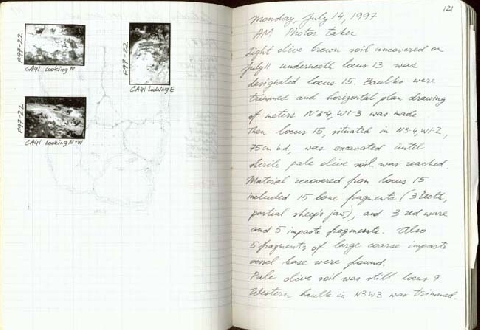 P97-22
CA41 looking N
P97-22
CA41 looking E
P97-22
CA41 looking N+W
121
Monday, July 14, 1997
AM Photos taken
Light olive brown soil uncovered on
July 11 underneath locus 13 was
designated locus 15. Baulks were
trimmed and horizontal plan drawing
of meters was made
Then locus 15, situated in
was excavated until
sterile pale olive soil was reached
Material recovered from locus 15
included 15 bone fragments (3 teeth,
partial sheep's jaw), and 3 red ware
and 5 impasto fragments. Also
5 fragments of large coarse impasto
vessel base were found.
Pale olive soil was still locus 7
Western baulk in N3W3 was trimmed